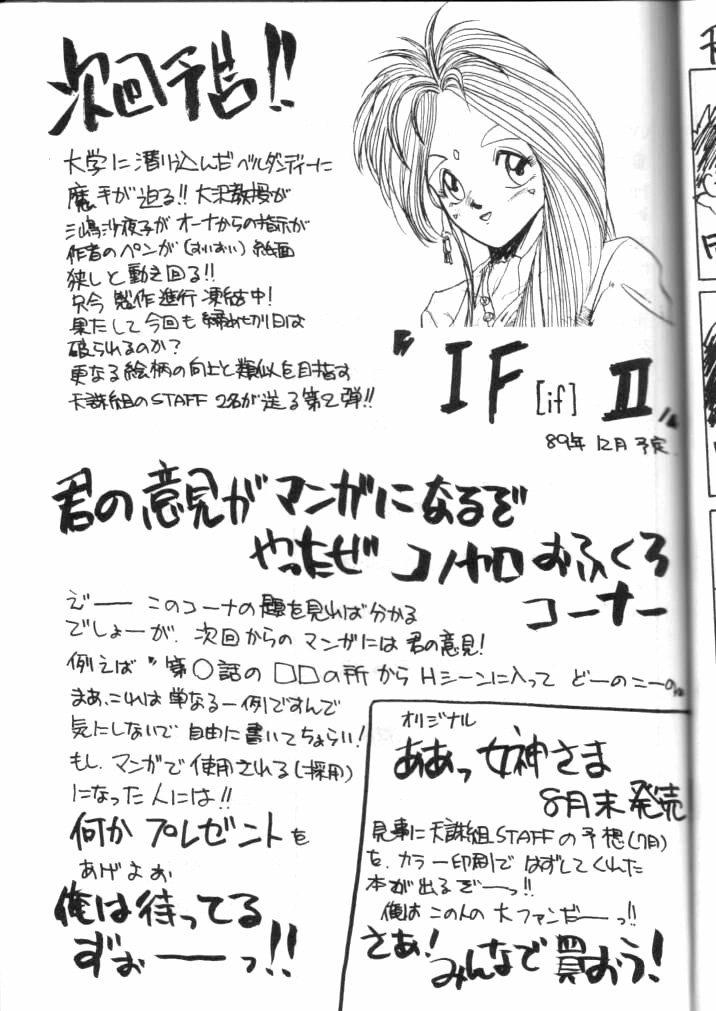 次回予告!!
大学に潜り込んだベルダンディーに
魔手が迫る!! 大沢教授が
三嶋沙夜子が オーナからの指示が
作者のペンが(すいすい) 絵画
狭しと動き回る!!
只今 製作進行 凍結中!
果たして今回も締め切り日は
破られるのか?
更なる絵柄の向上と類似を目指す
天誅組のSTAFF 2名が送る第2弾!!
"IF [if] Ⅱ"
89年 12月 予定
君の意見がマンガになるぞ
やったぜ コノヤロ おふくろ
コーナー
どーー このコーナの題を見れば分かる
でしょーが、次回からの マンガには 君の意見!
例えば〝第○話の □□の所から Hシーンに入って どーのこーの〟
まあ、これは 単なる一例ですんで
気にしないで 自由に書いてちょうらい!
もし、マンガで使用される(採用)
になった人には!!
何か プレゼント を
あげよお
俺は待ってる
ずぉーーっ!!
オリジナル
ああっ女神さま
8月末 発売
見事に天誅組STAFFの予想(7月)
を、カラー印刷で はずしてくれた
本が出るぞーっ!!
俺は この人の 大ファンだーーっ!!
さあ!
みんなで 買おう!